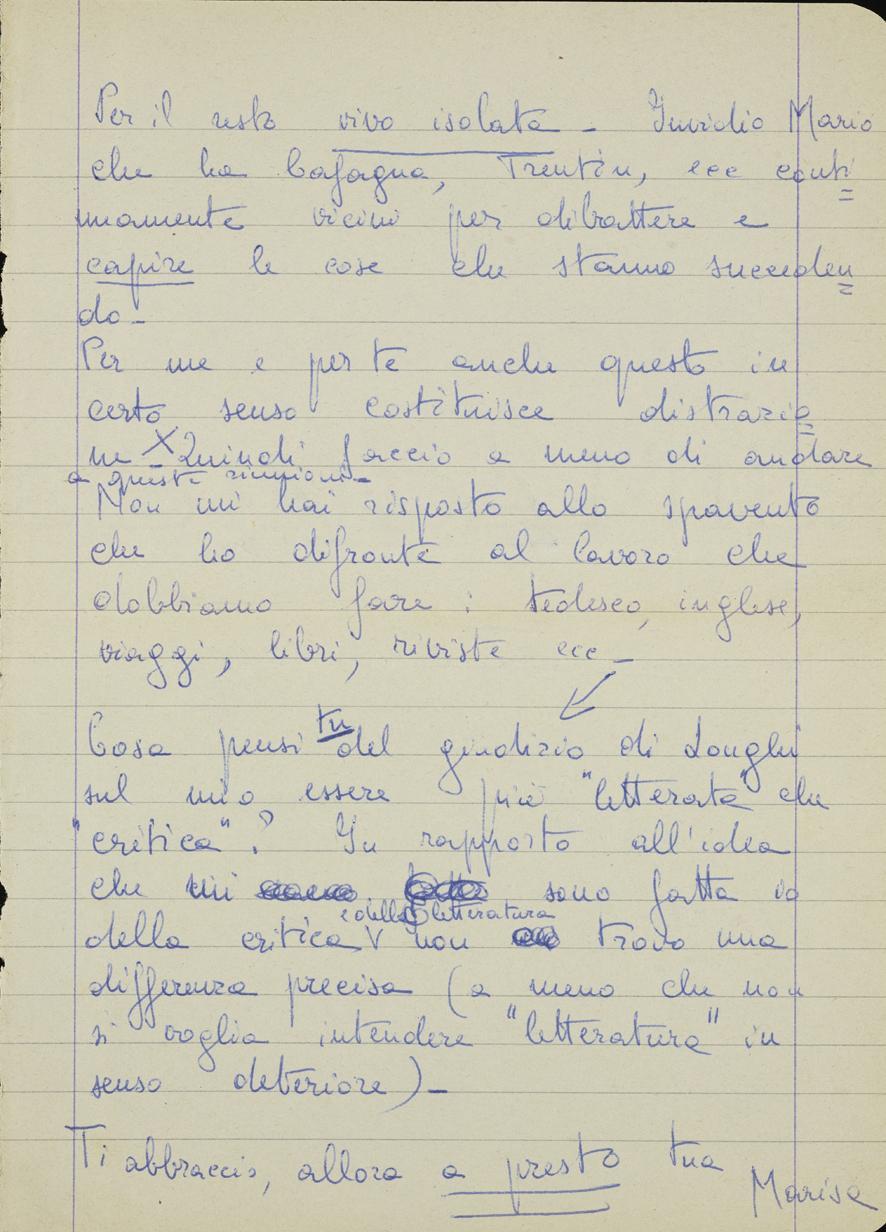 Per il resto vivo isolata - Invidio Mario
che ha Cafagna, Trentin, ecc conti=
nuamente vicini per dibattere e
capire le cose che stanno succeden=
do -
Per me e per te anche questo in
certo senso costituisce distrazio=
ne X Quindi faccio a meno di andare
a queste riunioni -
Non mi hai risposto allo spavento
che ho difronte al lavoro che
dobbiamo fare : tedesco, inglese,
viaggi, libri, riviste ecc -
Cosa pensi tu del giudizio di Longhi
sul mio essere più "letterata" che
"critica"? In rapporto all'idea
che mi sono fatta io
e della letteratura
della critica V non trovo una
differenza precisa (a meno che non
si voglia intendere "letteratura" in
senso deteriore) -
Ti abbraccio, allora a presto tua
Marisa